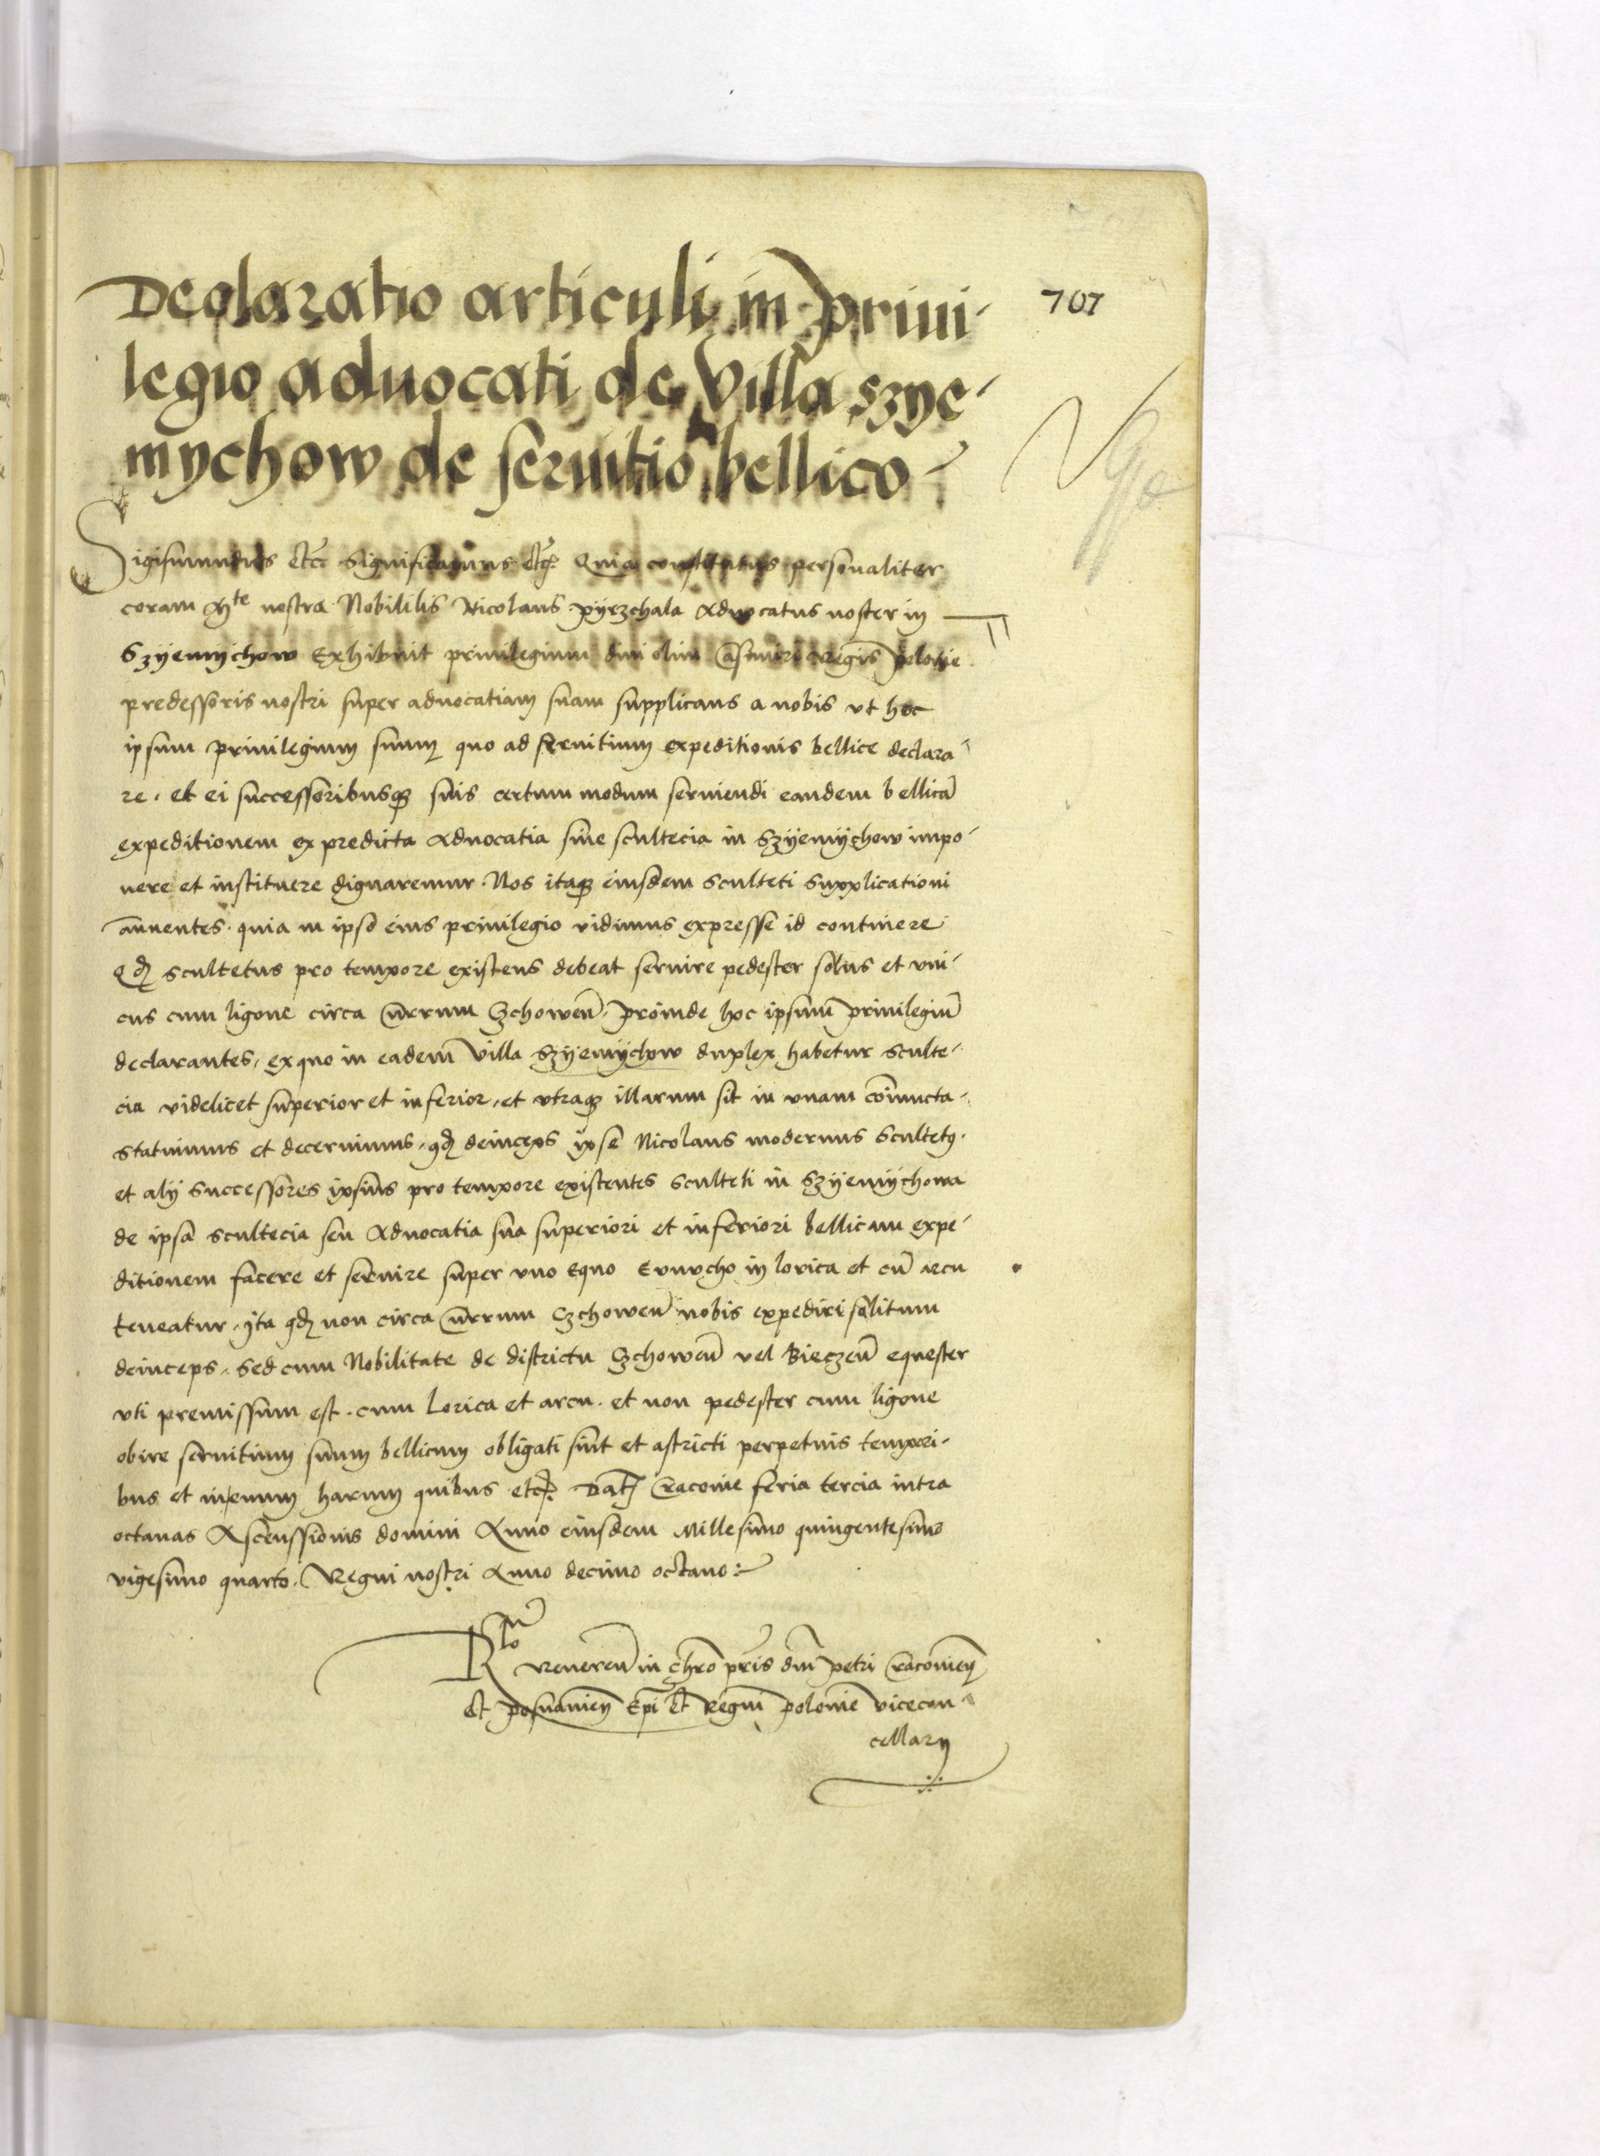 Declaratio articuli in priui-
707
legio aduocati de Villa szye-
mychow de seruitio bellico
Sigismundus etc̄ Significamus etc̄ꝫ Quia constitutus personaliter
coram Mte nostra Nobililis Nicolaus pyrzchala Aduocatus noster in
Szyemychow Exhibuit priuilegium diui olim Casimiri Regis polonie
predessoris nostri super aduocatiam suam supplicans a nobis vt hoc
ipsum priuilegium suum quo ad seruitium expeditionis bellice declara
re. et ei successoribusqꝫ suis certum modum seruiendi eandem bellicā
expeditionem ex predicta Aduocatia siue scultecia in Szyemychow impo-
nere et instituere dignaremur. Nos itaqꝫ eiusdem sculteti supplicationi
annuentes. quia in ipso eius priuilegio vidimus expresse id continere
Qđ scultetus pro tempore existens debeat seruire pedester solus et vni-
cus cum ligone circa currum Szchoweń. proinde hoc ipsum priuilegiū
declarantes, ex quo in eadem villa Szyemychow duplex habetur sculte-
cia videlicet superior et inferior, et vtraqꝫ illarum sit in vnam coniuncta.
statuimus et decernimus. qđ deinceps ipse Nicolaus modernus Scultetꝰ.
et alij successores ipsius pro tempore existentes sculteti in Szyemychowa
de ipsa scultecia seu Aduocatia sua superiori et inferiori bellicam expe-
ditionem facere et seruire super vno Equo Evnucho in lorica et cū arcu
teneatur. yta qđ non circa currum Szchoweń nobis expediri solitum
deinceps. Sed cum Nobilitate de districtu Szchoweń vel Bieczeń equester
vti premissum est. cum Lorica et arcu. et non pedester cum ligone
obire seruitium suum bellicum obligati sint et astricti perpetuis tempori-
bus et in euum harum quibus etcꝫ. Dat̄ Cracouie feria tercia intra
octauas Ascenssionis domini Anno eiusdem Millesimo quingentesimo
vigesimo quarto. Regni nostri Anno decimo octauo
Rlo
Reuereń in chro pris dni petri Cracouień
et posnanień Epi et Regni polonie vicecan
cellarij